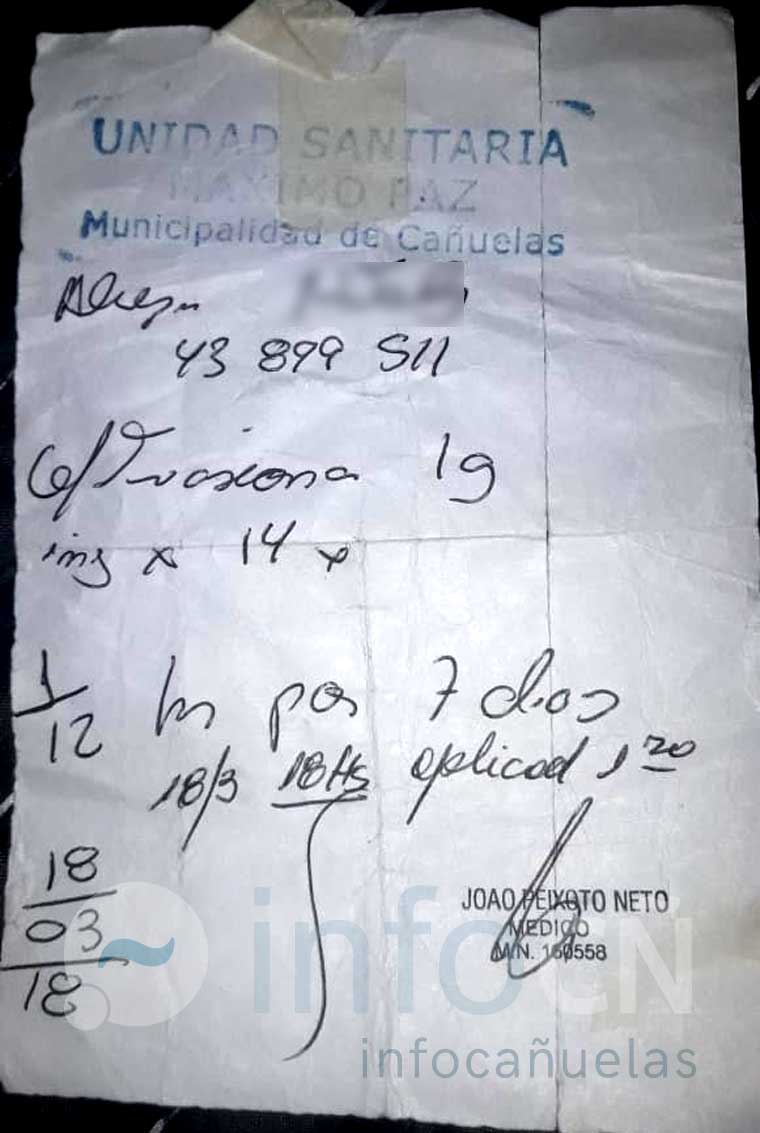 UNIDAD SANITARIA
MAXIMO PAZ
Municipalidad de Cañuelas
43 899 511
Ceftriaxona 1g
iny x 14
1/12 hs por 7 dias
18/3 18Hs aplicad 1
18
03
18
JOAO PEIXOTO NETO
MEDICO
M.N. 160558
infoCN
infocañuelas